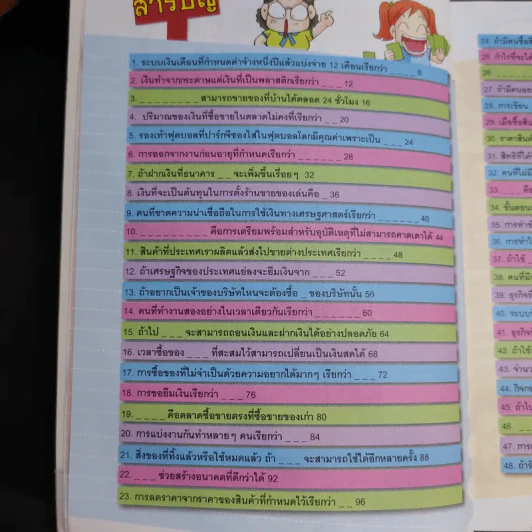 สารบัญ
1. ระบบเงินเดือนที่กำหนดค่าจ้างหนึ่งปีแล้วแบ่งจ่าย 12 เดือนเรียกว่า _ _ _ _ 8
2. เงินทำจากกระดาษแต่เงินที่เป็นพลาสติกเรียกว่า _ _ _ 12
3. _ _ _ _ _ _ _ _ สามารถขายของที่บ้านได้ตลอด 24 ชั่วโมง 16
4. ปริมาณของเงินที่ซื้อขายในตลาดไม่คงที่เรียกว่า _ _ 20
5. รองเท้าฟุตบอลที่ปาร์กจีซองใส่ในฟุตบอลโลกมีคุณค่าเพราะเป็น _ _ _ _ 24
6. การออกจากงานก่อนอายุที่กำหนดเรียกว่า _ _ _ _ _ _ _ 28
7. ถ้าฝากเงินที่ธนาคาร _ _ จะเพิ่มขึ้นเรื่อยๆ 32
8. เงินที่จะเป็นต้นทุนในการตั้งร้านขายของเล่นคือ _ 36
9. คนที่ขาดความน่าเชื่อถือในการใช้เงินทางเศรษฐศาสตร์เรียกว่า _ _ _ _ _ _ 40
10. _ _ _ _ _ _ _ _ คือการเตรียมพร้อมสำหรับอุบัติเหตุที่ไม่สามารถคาดเดาได้ 44
11. สินค้าที่ประเทศเราผลิตแล้วส่งไปขายต่างประเทศเรียกว่า _ _ _ _ 48
12. ถ้าเศรษฐกิจของประเทศแย่ลงจะยืมเงินจาก _ _ _ 52
13. ถ้าอยากเป็นเจ้าของบริษัทไหนจะต้องซื้อ _ ของบริษัทนั้น 56
14. คนที่ทำงานสองอย่างในเวลาเดียวกันเรียกว่า _ _ _ _ _ _ 60
15. ถ้าไป _ _ _ จะสามารถถอนเงินและฝากเงินได้อย่างปลอดภัย 64
16. เวลาซื้อของ _ _ _ ที่สะสมไว้สามารถเปลี่ยนเป็นเงินสดได้ 68
17. การซื้อของที่ไม่จำเป็นด้วยความอยากได้มากๆ เรียกว่า _ _ _ 72
18. การขอยืมเงินเรียกว่า _ _ _ 76
19. _ _ _ _ คือตลาดซื้อขายตรงที่ซื้อขายของเก่า 80
20. การแบ่งงานกันทำหลายๆ คนเรียกว่า _ _ _ 84
21. สิ่งของที่ทิ้งแล้วหรือใช้หมดแล้ว ถ้า _ _ _ จะสามารถใช้ได้อีกหลายครั้ง 88
22. _ _ _ ช่วยสร้างอนาคตที่ดีกว่าได้ 92
23. การลดราคาจากราคาของสินค้าที่กำหนดไว้เรียกว่า _ _ 96
24. ถ้ามีคนซื้อ
26. _ _ _ _ _ _
28. การเขียน
29. เมื่อซื้อสิน
30. ราคาสินค้
31. สิทธิที่ได้
32. คนที่ไม่มี
33. _ _ _ คือ
34. ขั้นตอน
35. การทำ
36. การทำ
37. ถ้าใช้ _
38. คนที่มี
39. ธุรกิจที่
40. ระบบ
41. ธุรกิจ
42. ถ้าใช้
43. จำนว
44. กิจกร
45. ถ้าไป
46. _ _ _
47. การ
48. ถ้ารั